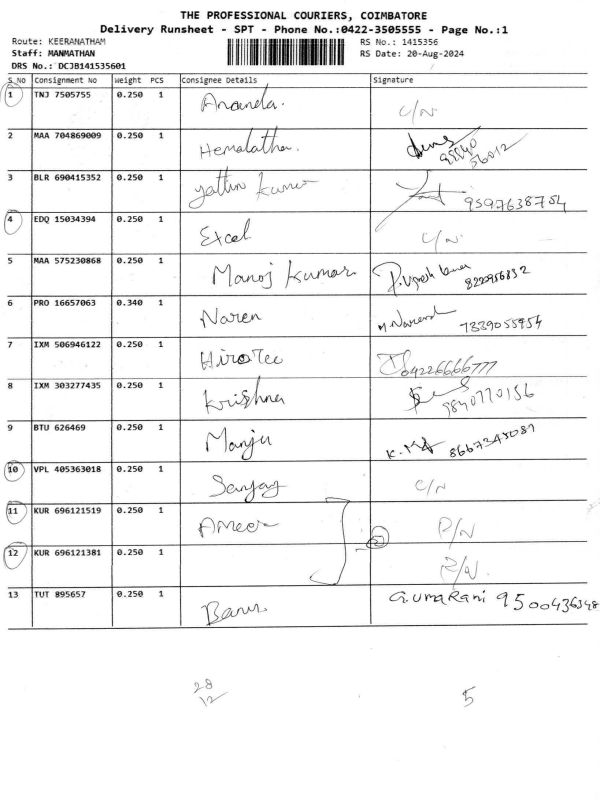 THE PROFESSIONAL COURIERS, COIMBATORE
Delivery Runsheet - SPT - Phone No.:0422-3505555 - Page No.:1
Route: KEERANATHAM RS No.: 1415356
Staff: MANMATHAN RS Date: 20-Aug-2024
DRS No.: DCJB141535601
S_No Consignment No Weight PCS Consignee Details Signature
1 TNJ 7505755 0.250 1 Ananda. C/N
2 MAA 704869009 0.250 1 Hemalatha. 95540
56012
3 BLR 690415352 0.250 1 yattin kumar 9597638754
4 EDQ 15034394 0.250 1 Excel C/N.
5 MAA 575230868 0.250 1 Manoj kumar 8220956832
6 PRO 16657063 0.340 1 Naren M Narend 7339055954
7 IXM 506946122 0.250 1 Hirotec 04226666777
8 IXM 303277435 0.250 1 Krishna 9840770156
9 BTU 626469 0.250 1 Manju 8667345081
10 VPL 405363018 0.250 1 Sanjay C/N
11 KUR 696121519 0.250 1 Ameer P/N
12 KUR 696121381 0.250 1 2
13 TUT 895657 0.250 1 G.UMARANI 9500436348
28
12
5